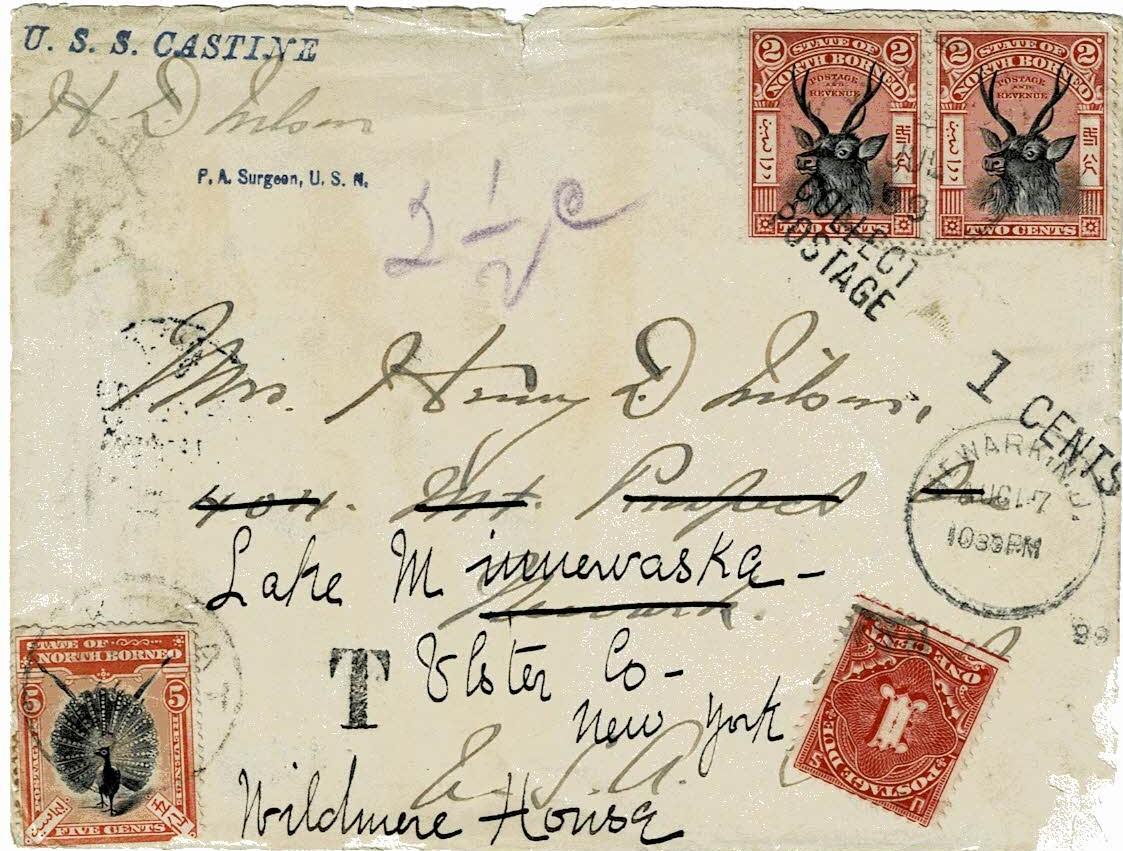 U. S. S. CASTINE
H. D. Wilson
P. A. Surgeon, U. S. N.
2 1/2 c
2 STATE OF 2
NORTH BORNEO
POSTAGE
AND
REVENUE
TWO CENTS
2 STATE OF 2
NORTH BORNEO
POSTAGE
AND
REVENUE
TWO CENTS
COLLECT
POSTAGE
1 CENTS
Mrs. Henry D. Wilson,
404. Mt. Prospect
NEWARK, N.J.
AUG 1-7
1030PM
99
Lake Minnewaska -
Newark.
T
Ulster Co -
New York
U. S. A.
Wildmere House
STATE OF
NORTH BORNEO
5 5
POSTAGE
REVENUE
FIVE CENTS
ONE CENT
1
POSTAGE DUE
U S